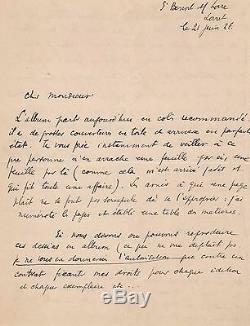 St Benoit s/ Loire
Loiret
le 21 juin 26
Cher Monsieur
L'album part aujourd'hui en colis recommandé
il a de grosses couvertures en toile et arrivera en parfait
état. Je vous prie instamment de veiller à ce
que personne n'en arrache une feuille par ci, une
feuille par là (comme cela m'est arrivé jadis et
qui fit toute une affaire). Les amis à qui une page
plaît ne se font pas scrupule de se l'approprier: j'ai
numéroté les pages et établi une table des matières.
Si vous désirez ou pouvez reproduire
ces dessins en album (ce qui ne me déplaît pas
je ne vous en donnerai l'autorisation que contre un
contrat fixant mes droits pour chaque édition
et chaque exemplaire etc